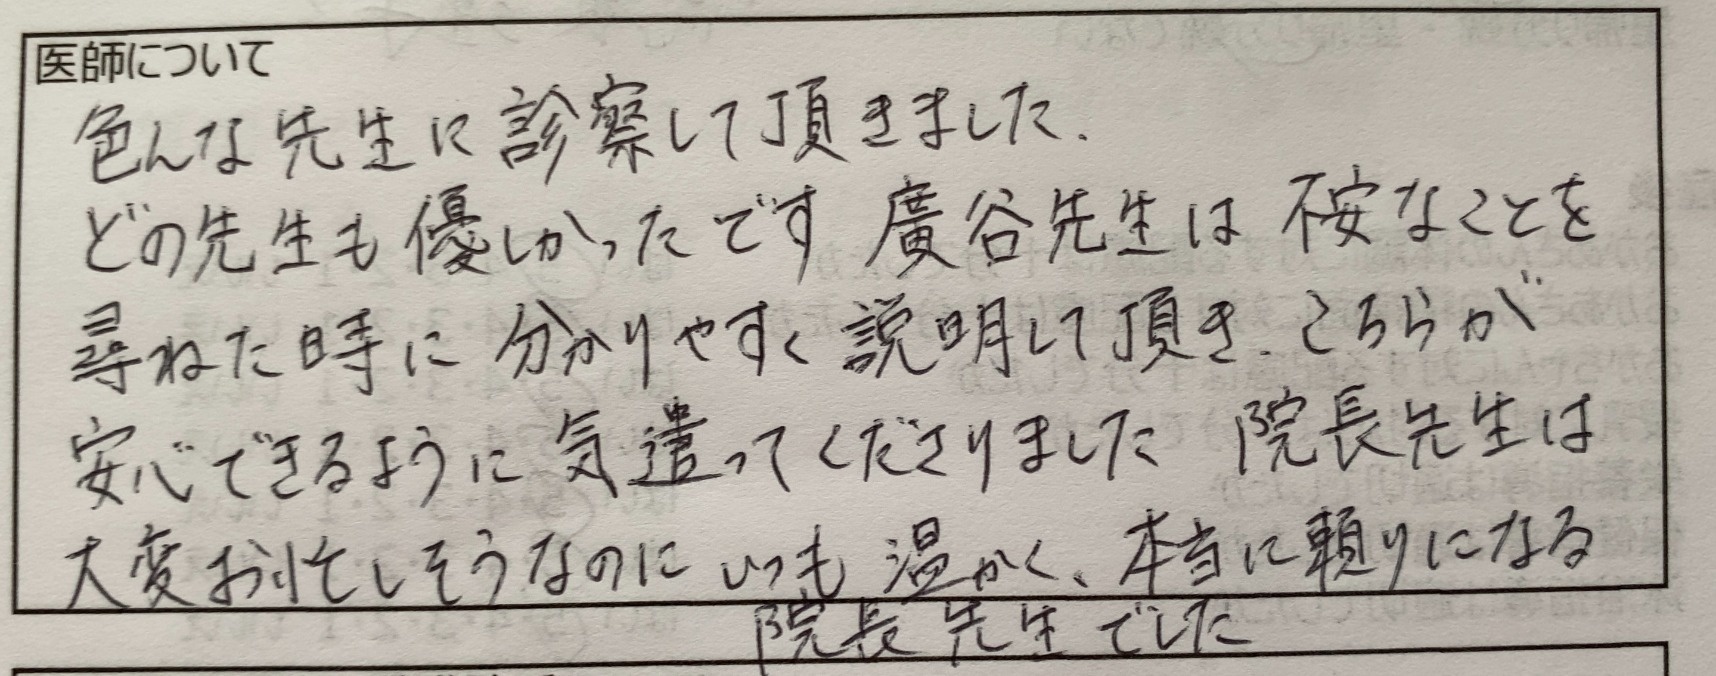 医師について
色んな先生に診察して頂きました.
どの先生も優しかったです 廣谷先生は 不安なことを
尋ねた時に 分かりやすく説明して頂き. こちらが
安心できるように気遣ってくださりました 院長先生は
大変お忙しそうなのに いつも 温かく、本当に頼りになる
院長先生でした